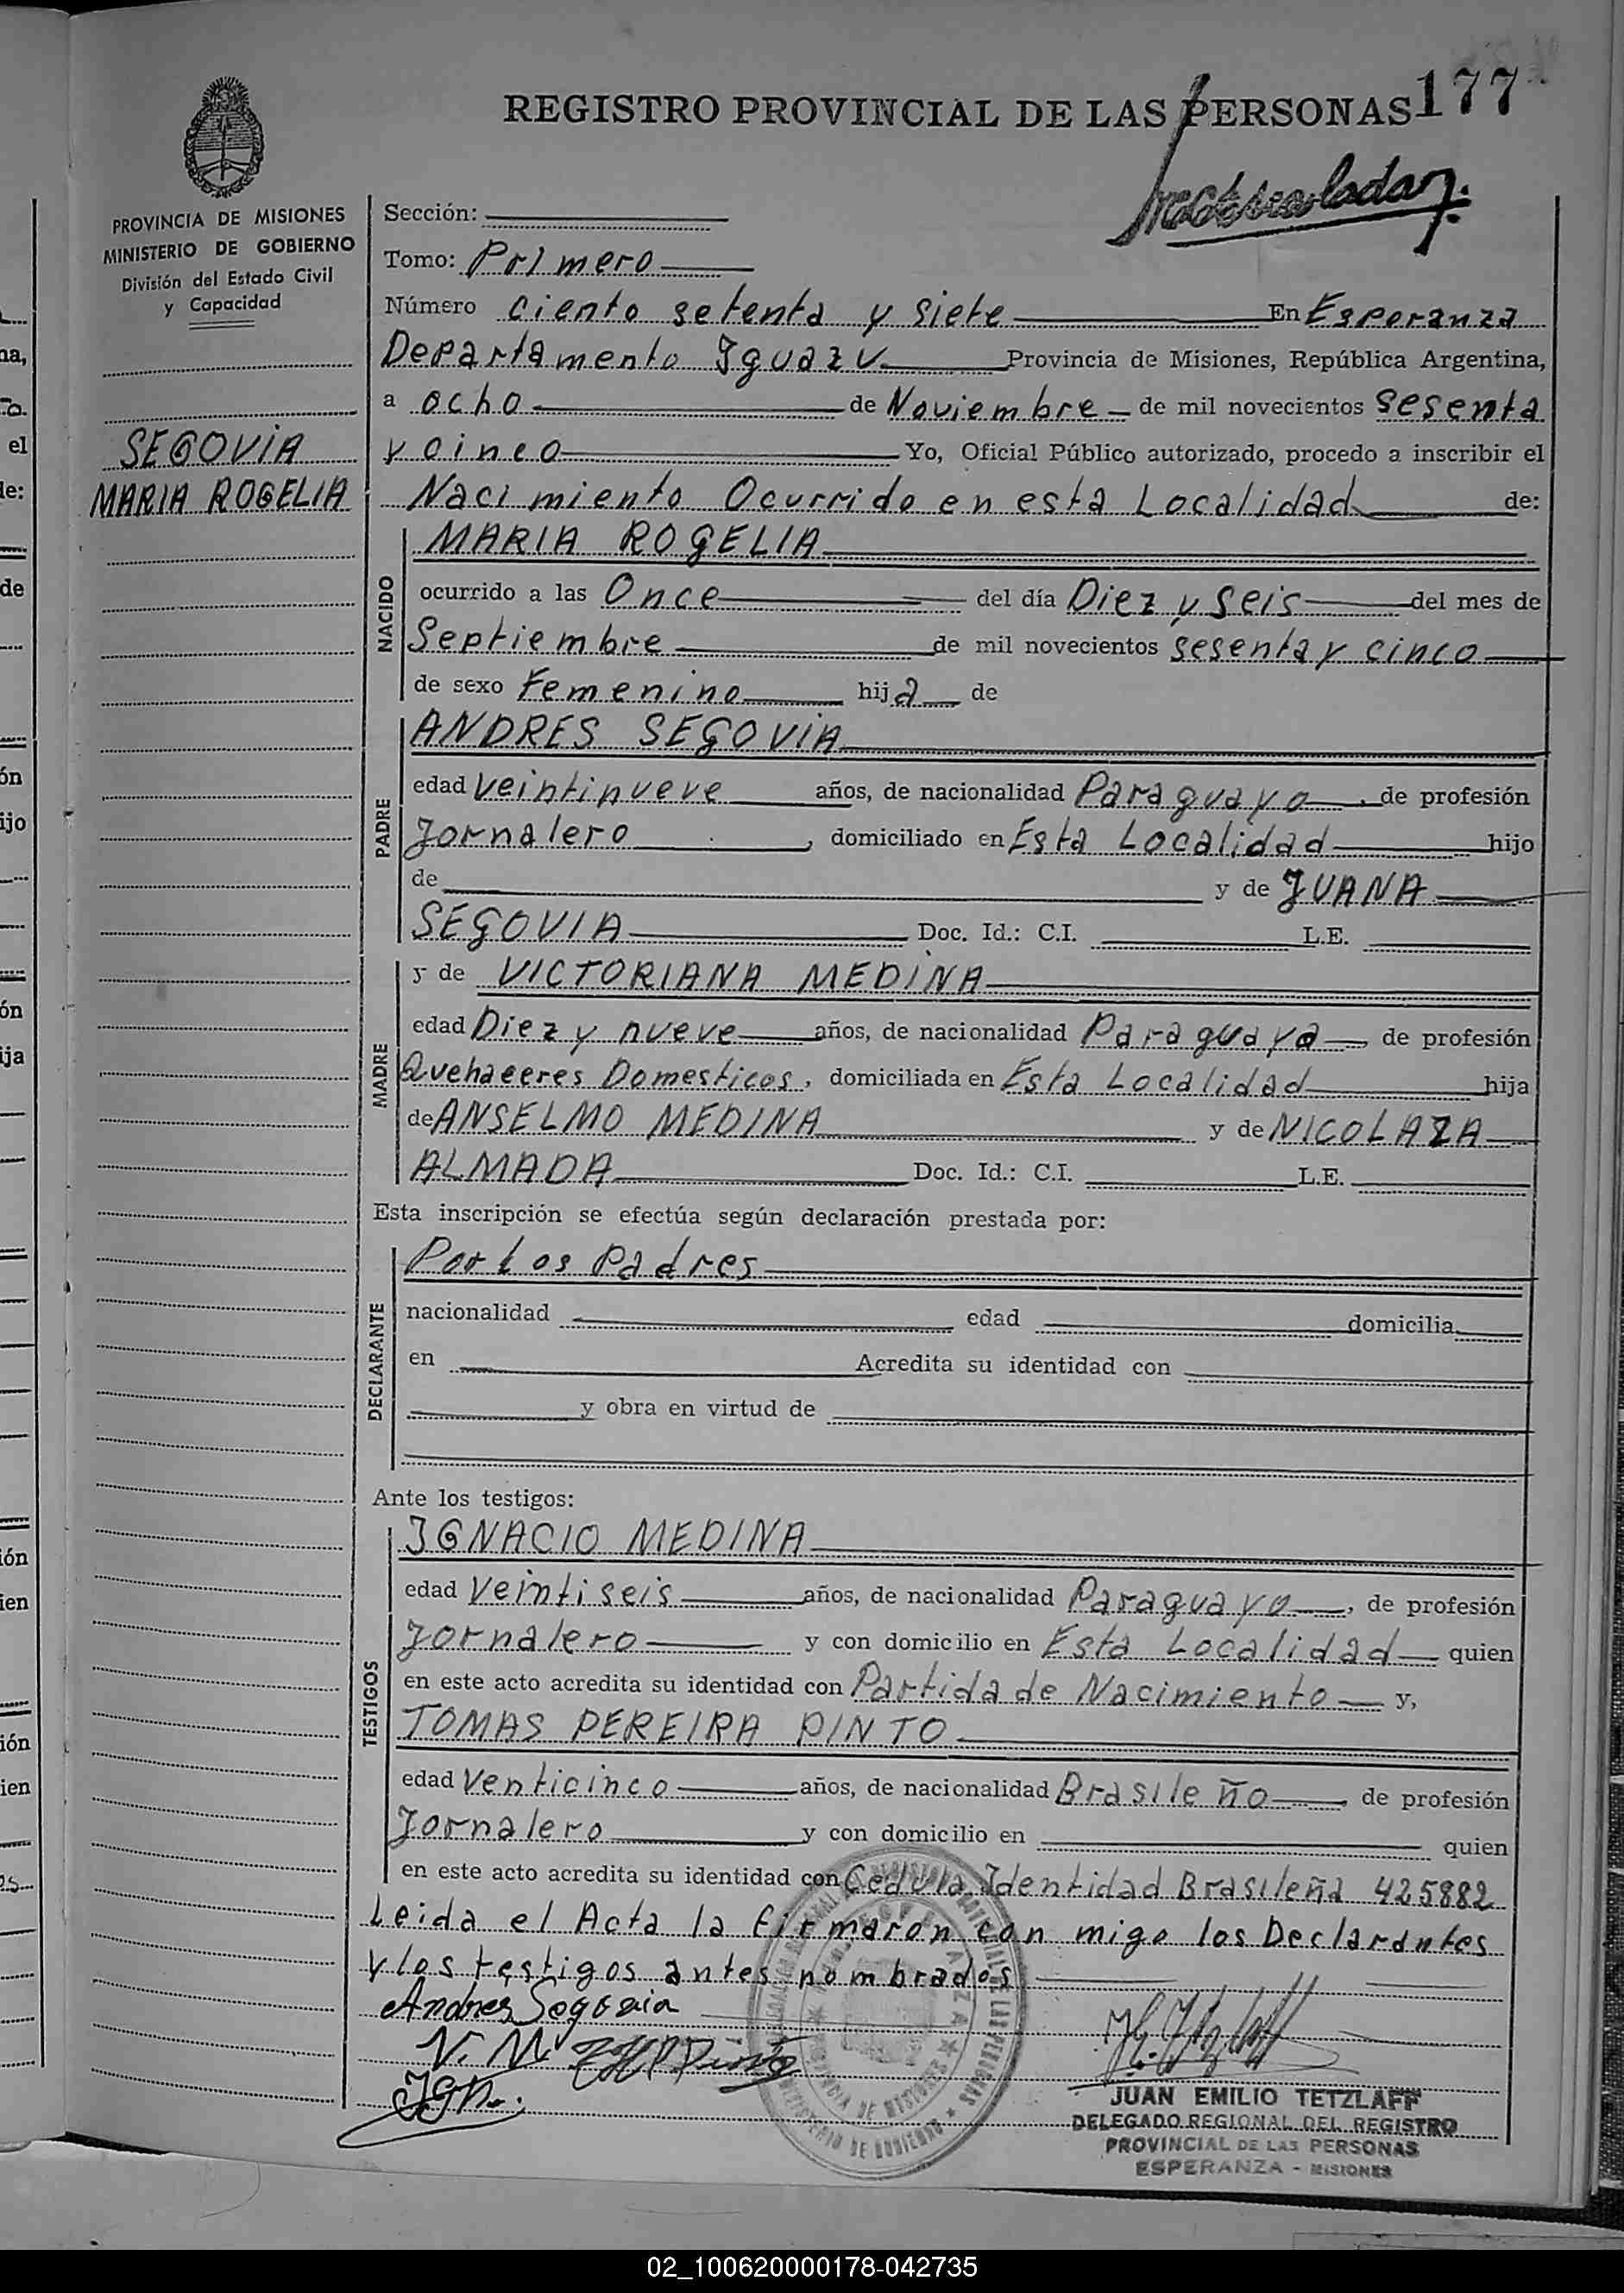 REGISTRO PROVINCIAL DE LAS PERSONAS 177
PROVINCIA DE MISIONES
MINISTERIO DE GOBIERNO
División del Estado Civil
y Capacidad
SEGOVIA
MARIA ROGELIA
Sección:
Tomo: Primero
Número Ciento setenta y siete En Esperanza
Departamento Iguazu Provincia de Misiones, República Argentina,
a ocho de Noviembre de mil novecientos sesenta
y cinco Yo, Oficial Público autorizado, procedo a inscribir el
Nacimiento Ocurrido en esta Localidad de:
NACIDO
MARIA ROGELIA
ocurrido a las Once del día Diez y seis del mes de
Septiembre de mil novecientos sesenta y cinco
de sexo Femenino hija de
PADRE
ANDRES SEGOVIA
edad veintinueve años, de nacionalidad Paraguayo, de profesión
Jornalero, domiciliado en Esta Localidad hijo
de y de JUANA
SEGOVIA Doc. Id.: C.I. L.E.
MADRE
y de VICTORIANA MEDINA
edad Diez y nueve años, de nacionalidad Paraguaya, de profesión
Quehaceres Domesticos, domiciliada en Esta Localidad hija
de ANSELMO MEDINA y de NICOLAZA
ALMADA Doc. Id.: C.I. L.E.
Esta inscripción se efectúa según declaración prestada por:
DECLARANTE
Por Los Padres
nacionalidad edad domicilia
en Acredita su identidad con
y obra en virtud de
Ante los testigos:
TESTIGOS
IGNACIO MEDINA
edad Veintiseis años, de nacionalidad Paraguayo, de profesión
Jornalero y con domicilio en Esta Localidad quien
en este acto acredita su identidad con Partida de Nacimiento y,
TOMAS PEREIRA PINTO
edad Venticinco años, de nacionalidad Brasileño, de profesión
Jornalero y con domicilio en quien
en este acto acredita su identidad con Cedula Identidad Brasileña 425882
Leida el Acta la firmaron con migo los Declarantes
y los testigos antes nombrados
Andres Segovia
V. M.
Ign.
JUAN EMILIO TETZLAFF
DELEGADO REGIONAL DEL REGISTRO
PROVINCIAL DE LAS PERSONAS
ESPERANZA - MISIONES
02_100620000178-042735